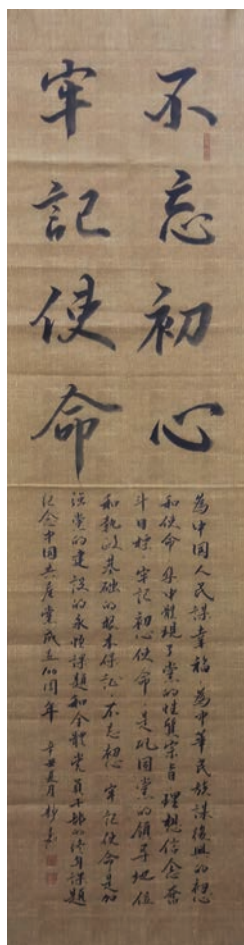 不忘初心
牢記使命
為中国人民謀幸福為中華民族謀復興的初心
和使命集中體現了黨的性質宗旨理想信念奋
斗目標牢記初心使命是巩固黨的領导地位
和执政基础的根本保証不忘初心牢記使命是加
強黨的建設的永恒課題和全體党員干部的终身課題
纪念中国共产党成立100周年 辛丑夏月